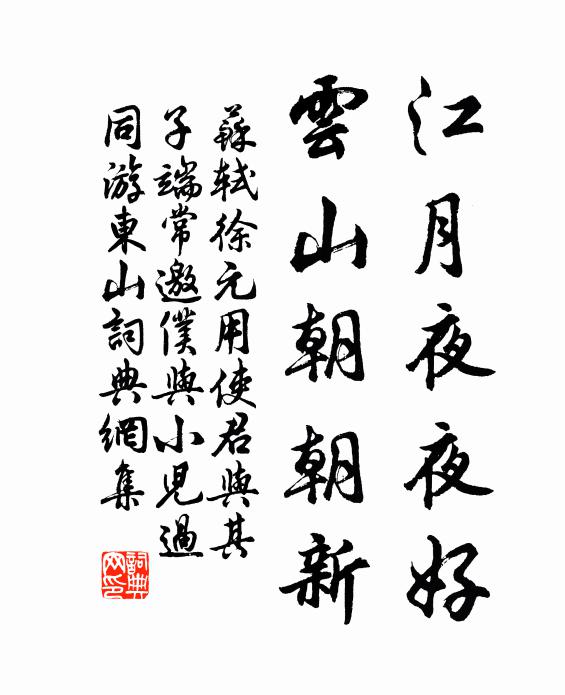 江月夜夜好
雲山朝朝新
蘇軾徐元用使君與其
子端常邀僕與小兒過
同游東山詞典網集
詞典网印